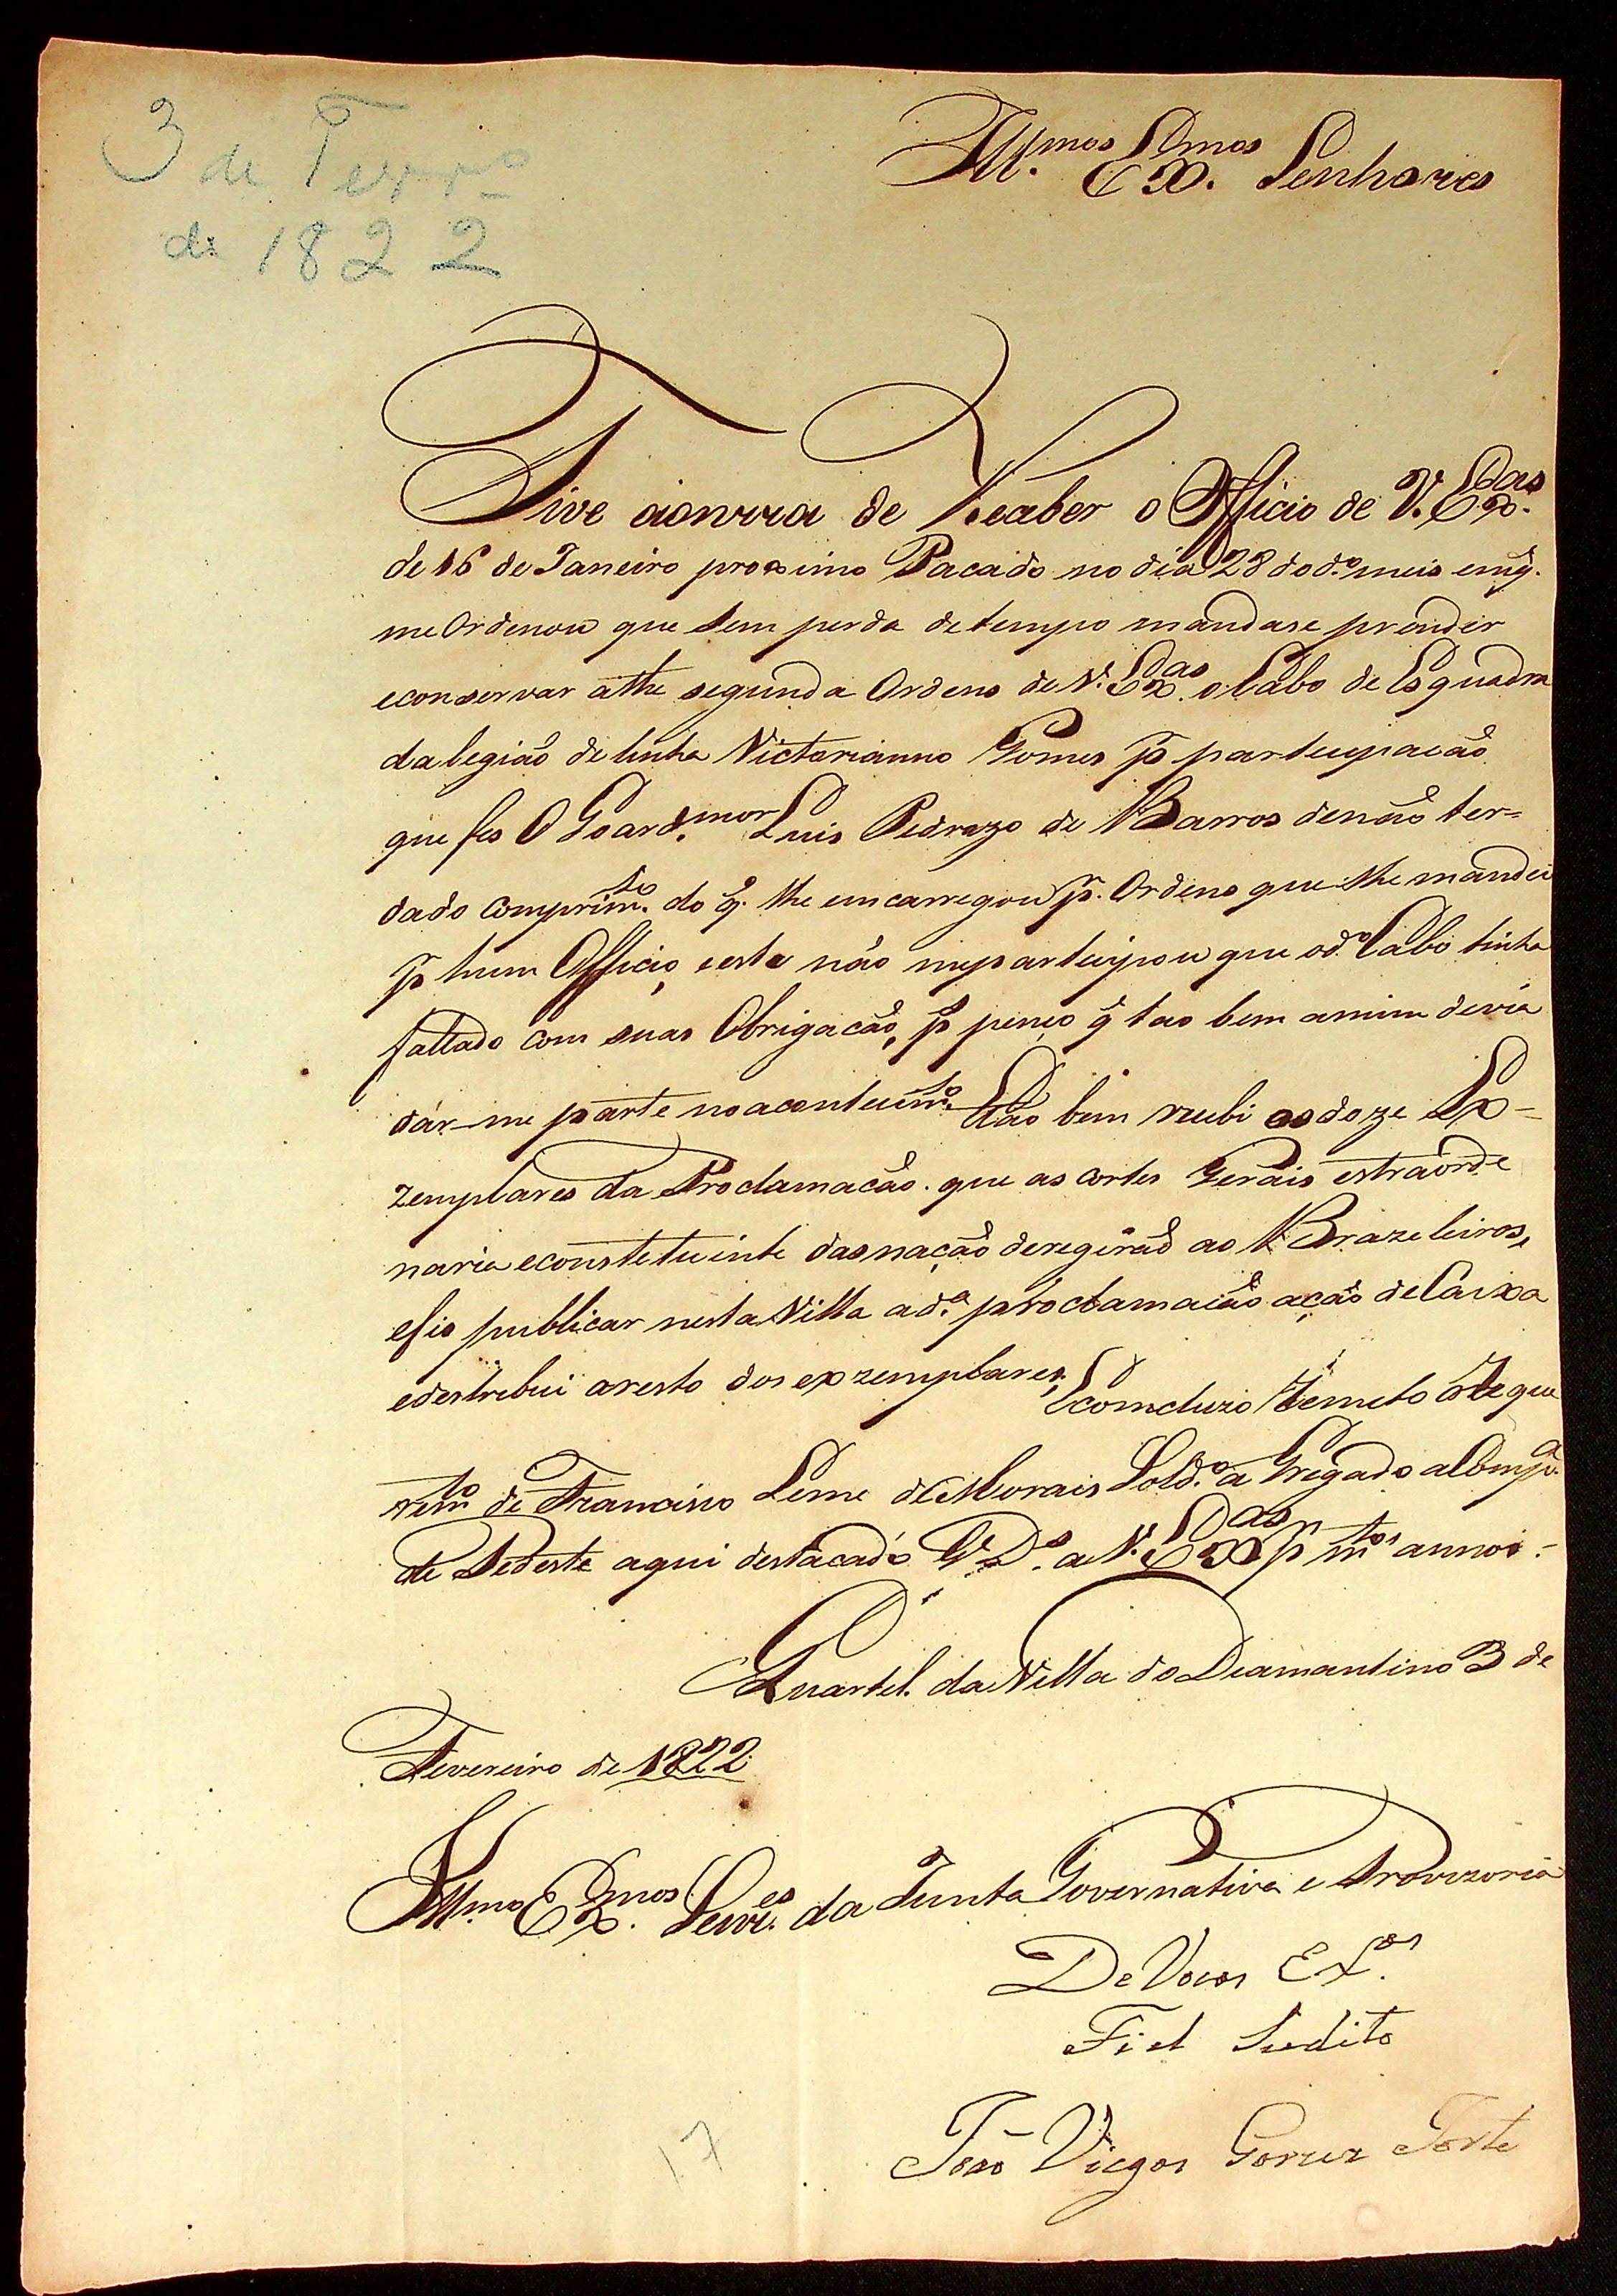 3 de Fevr.o
de 1822
Ill.mos Ex.mos Senhores
Tive aonrra de Receber o Officio de V. Ex.as
de 16 de Janeiro proximo Pacado no dia 28 do d.o meis em q.
me Ordenou que sem perda detempo mandase prender
econservar athe segunda Ordens de V. Ex.as o Cabo de Esquadra
da legião de linha Victorianno Gomes p participacão
que fes O Goard.mor Luis Pedrozo de Barros denão ter=
dado comprim.to do q. lhe emcarregou p.r Ordens que lhe mandei
p hum Officio, este não meparticipou que o d.o Cabo tinha
faltado com suas Obrigacão, p penço q tao bem amim devia
dár-me parte no acontecim.to Tão bem recebi as doze Ex=
zemplares da Proclamacão. que as cortes Gerais estraorde
naria econstetuinte dasnação deregirão ao Brazeleiros,
efis publicar nesta Villa ad.a proclamacão a ção de Caixa
edestrebui oresto dos exzemplares, Ecomcluzo Remeto o Reque
rem.to de Francisco Leme de Morais Sold.o a Gregado a Comp.a
de Pedeste aqui destacado G.e D.s a V. Ex.as p m.tos annos.
Quartel da Villa do Diamantino 3 de
Fevereiro de 1822
Ill.mos Ex.mos Senr.es da Junta Governativa e Provizoria
De Vocas Ex.as
Fiel Sudito
João Viegas Fortes
17